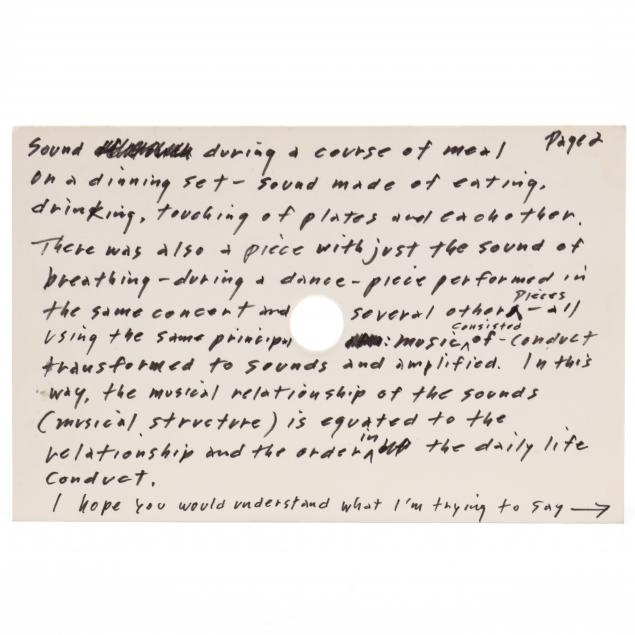 Page 2
Sound during a course of meal
on a dinning set - sound made of eating,
drinking, touching of plates and eachother.
There was also a piece with just the sound of
breathing - during a dance - piece performed in
the same concert and several other pieces - all
using the same princip : music consisted of - conduct
transformed to sounds and amplified. In this
way, the musical relationship of the sounds
(musical structure) is equated to the
relationship and the order in the daily life
conduct.
I hope you would understand what I'm trying to say →